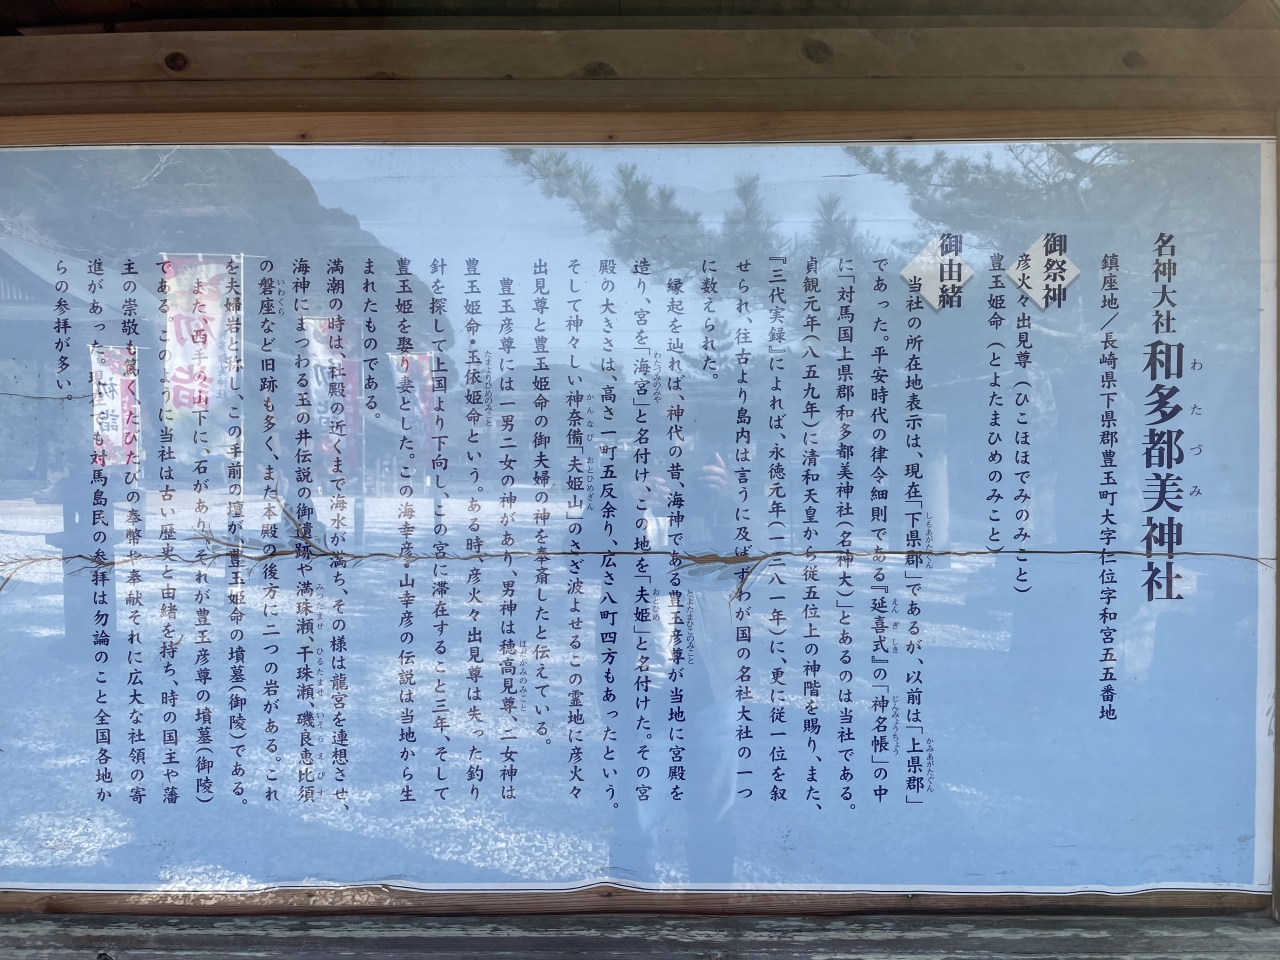 名神大社 和多都美神社
わたづみ
鎮座地/長崎県下県郡豊玉町大字仁位字和宮五五番地
御祭神
彦火々出見尊(ひこほほでみのみこと)
豊玉姫命(とよたまひめのみこと)
御由緒
当社の所在地表示は、現在「下県郡」であるが、以前は「上県郡」
しもあがたぐん
かみあがたぐん
であった。平安時代の律令細則である『延喜式』の「神名帳」の中
えんぎしき
じんみょうちょう
に「対馬国上県郡和多都美神社(名神大)」とあるのは当社である。
貞観元年(八五九年)に清和天皇から従五位上の神階を賜り、また、
『三代実録』によれば、永徳元年(一三八一年)に、更に従一位を叙
せられ、往古より島内は言うに及ばずわが国の名社大社の一つ
に数えられた。
縁起を辿れば、神代の昔、海神である豊玉彦尊が当地に宮殿を
とよたまひこのみこと
造り、宮を「海宮」と名付け、この地を「夫姫」と名付けた。その宮
わたつみのみや
おとひめ
殿の大きさは、高さ一町五反余り、広さ八町四方もあったという。
そして神々しい神奈備「夫姫山」のさざ波よせるこの霊地に彦火々
かんなび
おとひめさん
出見尊と豊玉姫命の御夫婦の神を奉斎したと伝えている。
豊玉彦尊には一男二女の神があり、男神は穂高見尊、二女神は
ほだかみのみこと
豊玉姫命・玉依姫命という。ある時、彦火々出見尊は失った釣り
たまよりひめのみこと
針を探して上国より下向し、この宮に滞在すること三年、そして
豊玉姫を娶り妻とした。この海幸彦・山幸彦の伝説は当地から生
まれたものである。
満潮の時は、社殿の近くまで海水が満ち、その様は龍宮を連想させ、
海神にまつわる玉の井伝説の御遺跡や満珠瀬、干珠瀬、磯良恵比須
みつたませ
ひるたませ
いそらえびす
の磐座など旧跡も多く、また本殿の後方に二つの岩がある。これ
いわくら
を夫婦岩と称し、この手前の壇が、豊玉姫命の墳墓(御陵)である。
また、西手の山下に、石があり、それが豊玉彦尊の墳墓(御陵)
である。このように当社は古い歴史と由緒を持ち、時の国主や藩
主の崇敬も篤く、たびたびの奉幣や奉献それに広大な社領の寄
進があった。現在でも対馬島民の参拝は勿論のこと全国各地か
らの参拝が多い。